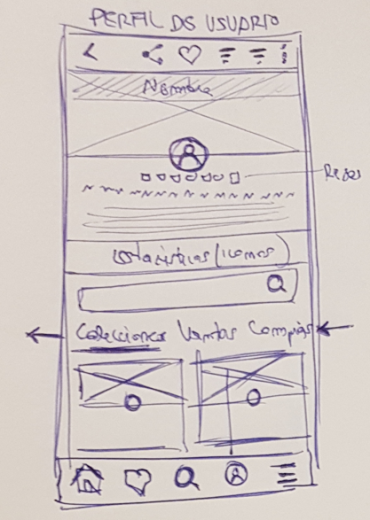 PERFIL DE USUARIO
Nombre
Redes
Estadísticas (iconos)
Colecciones Ventas Compras